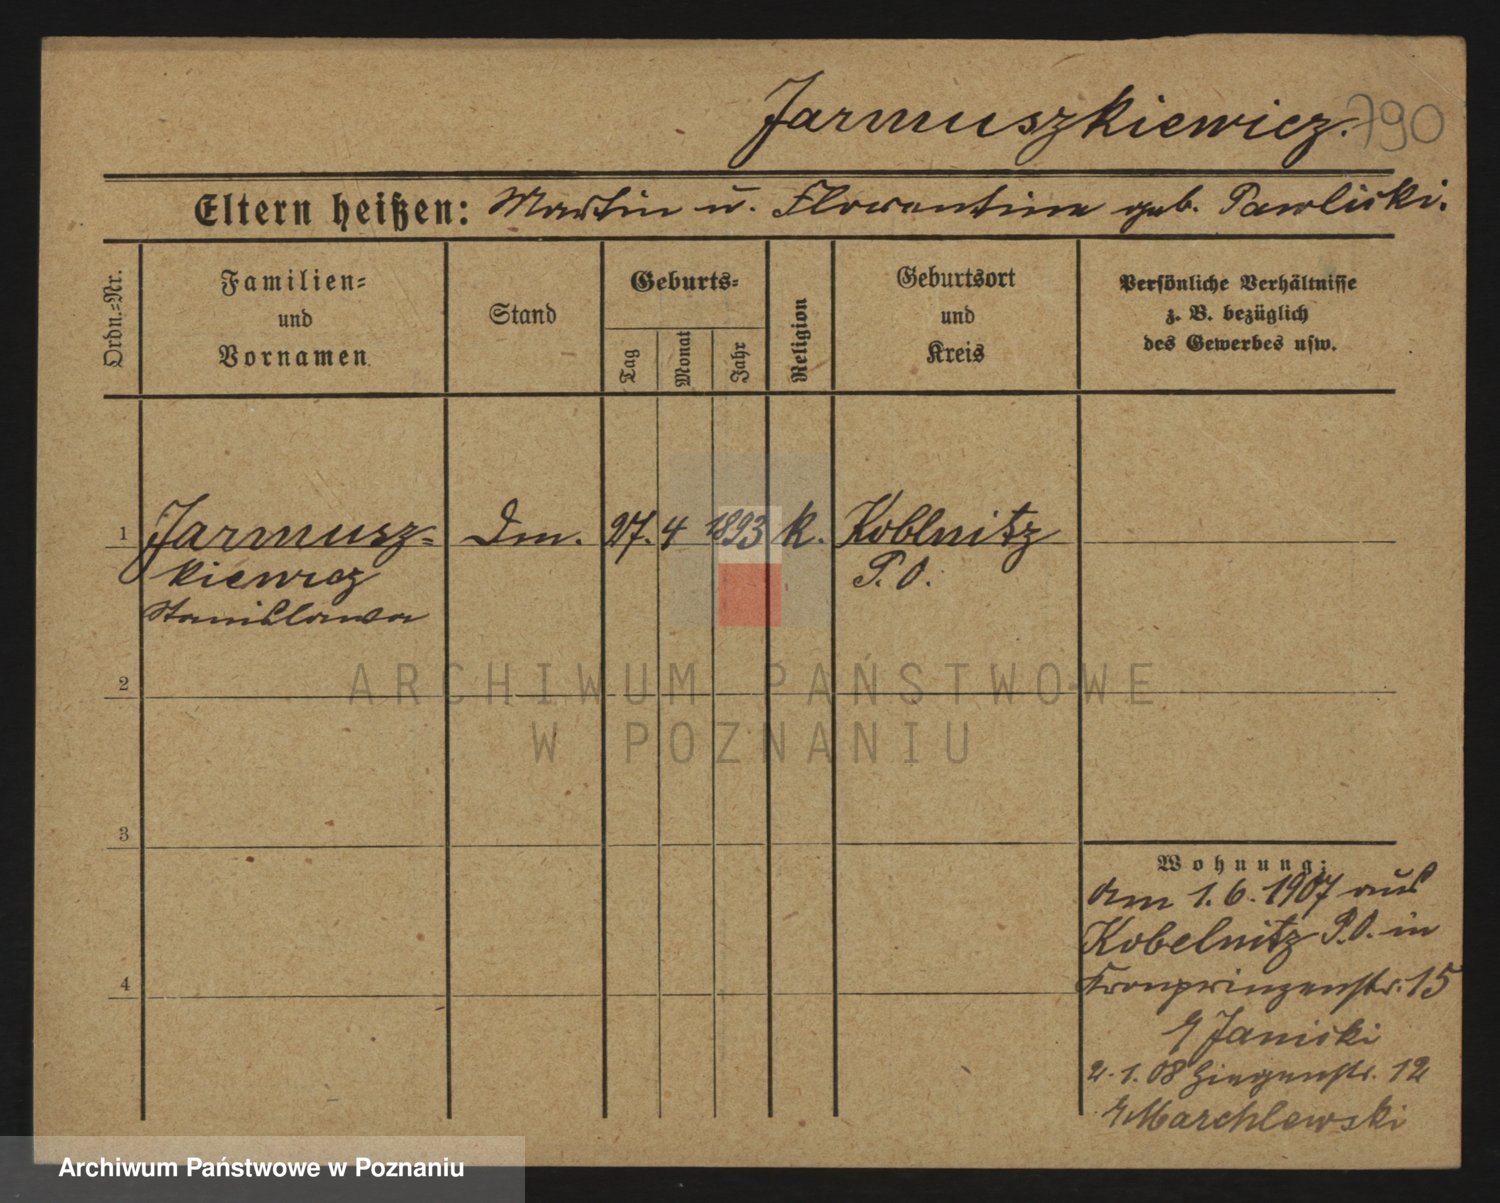 Jarmuszkiewicz. 790
Eltern heißen: Martin u. Florentine geb. Pawlicki.
Ordn.-Nr.
Familien-
und
Vornamen.
Stand
Geburts-
Tag
Monat
Jahr
Religion
Geburtsort
und
Kreis
Persönliche Verhältnisse
z. B. bezüglich
des Gewerbes usw.
1 Jarmusz- 27. 4 1893 k. Koblnitz
kiewicz P. O.
Stanislawa
2
ARCHIWUM PAŃSTWOWE
W POZNANIU
3
Wohnung:
am 1.6.1907 aus
Kobelnitz P.O. in
4
Kronprinzenstr. 15
Janicki
2.1.08 Ziegenstr. 12
Marchlewski
Archiwum Państwowe w Poznaniu